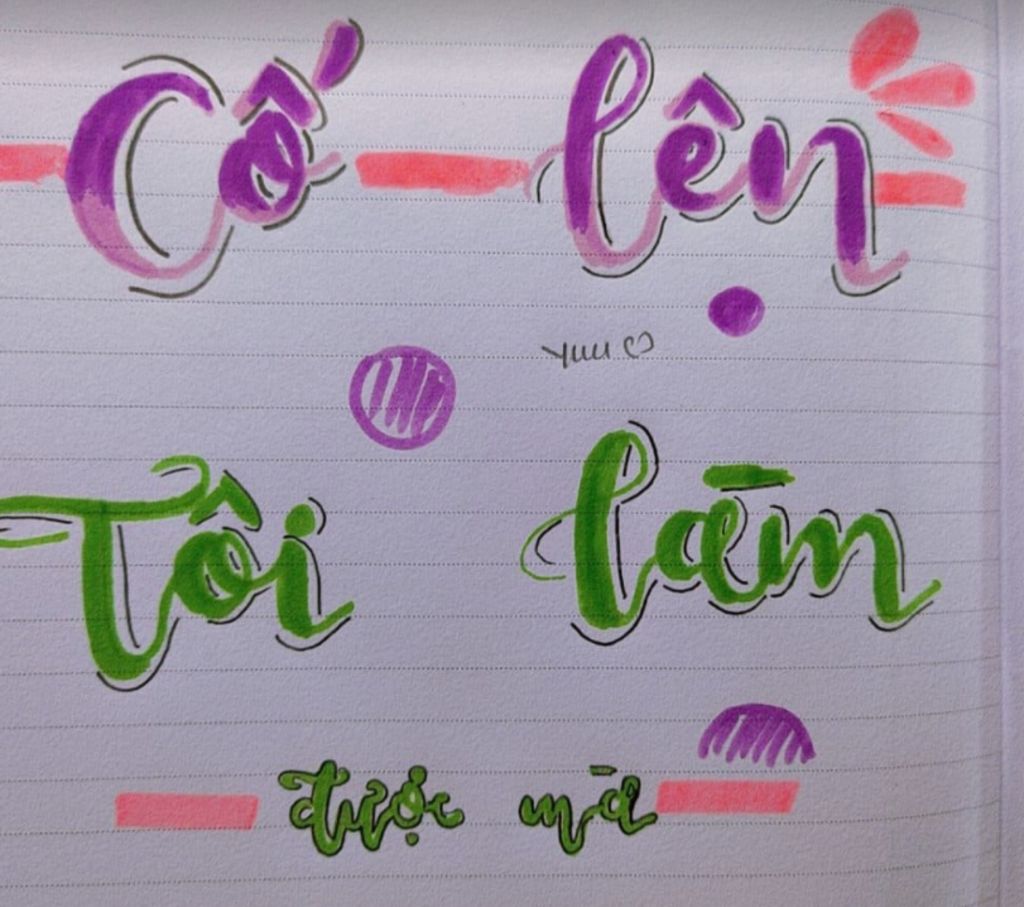 Cố lên
yuu ♡
Tôi làm
được mà